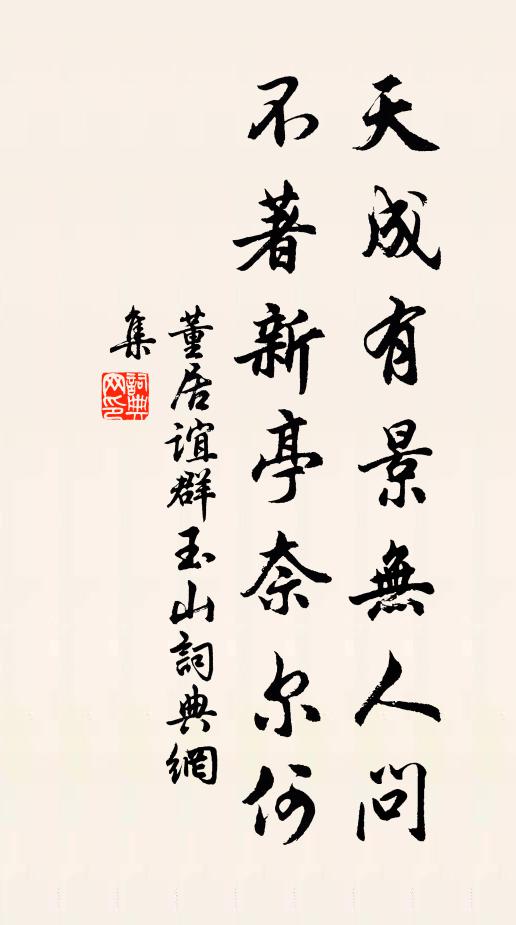 天成有景無人問
不著新亭奈尔何
董居誼群玉山詞典網
集
詞典
网印